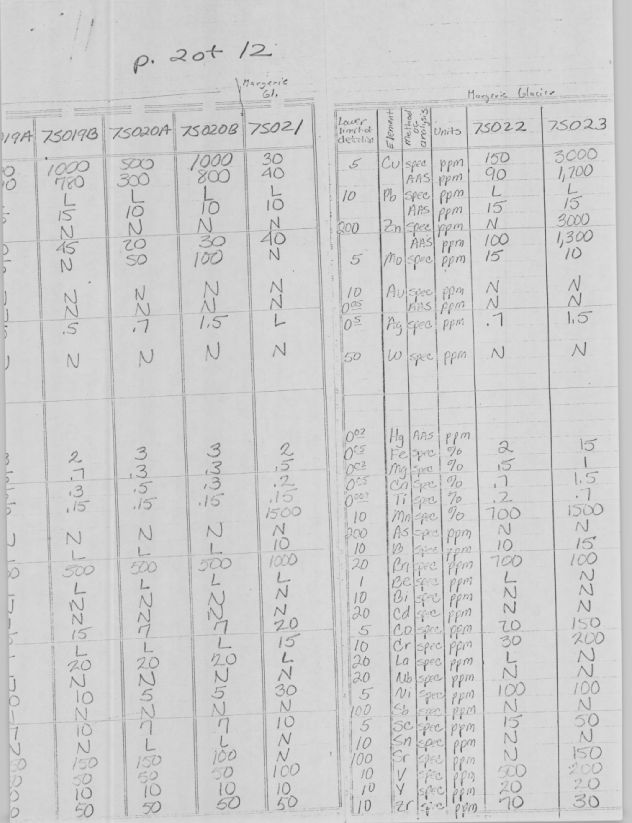 p. 2 of 12
Margerie Gl.
Margerie Glacier
19A 75019B 75020A 75020B 75021 Lower limit of detection Element Method of analysis Units 75022 75023
0 1000 500 1000 30 5 Cu spec ppm 150 3000
0 780 300 800 40 AAS ppm 90 1,700
L L L L 10 Pb spec ppm L L
15 10 10 10 AAS ppm 15 15
N N N N 200 Zn spec ppm N 3000
45 20 30 40 AAS ppm 100 1,300
N 50 100 N 5 Mo spec ppm 15 10
N N N N 10 Au spec ppm N N
N N N N 0.05 AAS ppm N N
.5 .7 1.5 L 0.5 Ag spec ppm .7 1.5
N N N N 50 W spec ppm N N
0.02 Hg AAS ppm
2 3 3 2 0.05 Fe spec % 2 15
.7 .3 .3 .5 0.02 Mg spec % .5 1
.3 .5 .3 .2 0.05 Ca spec % .7 1.5
.15 .15 .15 .15 0.002 Ti spec % .2 .7
1500 10 Mn spec % 700 1500
N N N N 200 As spec ppm N N
L L L 10 10 B spec ppm 10 15
500 500 500 1000 20 Ba spec ppm 700 100
L L L L 1 Be spec ppm L N
N N N N 10 Bi spec ppm N N
N N N N 20 Cd spec ppm N N
15 7 7 20 5 Co spec ppm 20 150
L L L 15 10 Cr spec ppm 30 200
20 20 20 L 20 La spec ppm L N
N N N N 20 Nb spec ppm N N
10 5 5 30 5 Ni spec ppm 100 100
N N N N 100 Sb spec ppm N N
10 7 7 10 5 Sc spec ppm 15 50
N L L N 10 Sn spec ppm N N
150 150 100 N 100 Sr spec ppm N 150
50 50 50 100 10 V spec ppm 200
10 10 10 10 10 Y spec ppm 20 20
50 50 50 50 10 Zr spec ppm 70 30